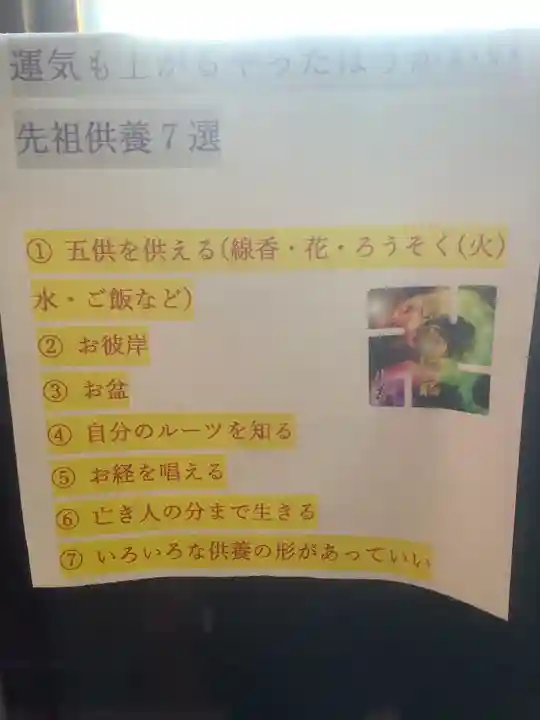 運気も上がるやったほうがいい
先祖供養7選
① 五供を供える(線香・花・ろうそく(火)
水・ご飯など)
② お彼岸
③ お盆
④ 自分のルーツを知る
⑤ お経を唱える
⑥ 亡き人の分まで生きる
⑦ いろいろな供養の形があっていい